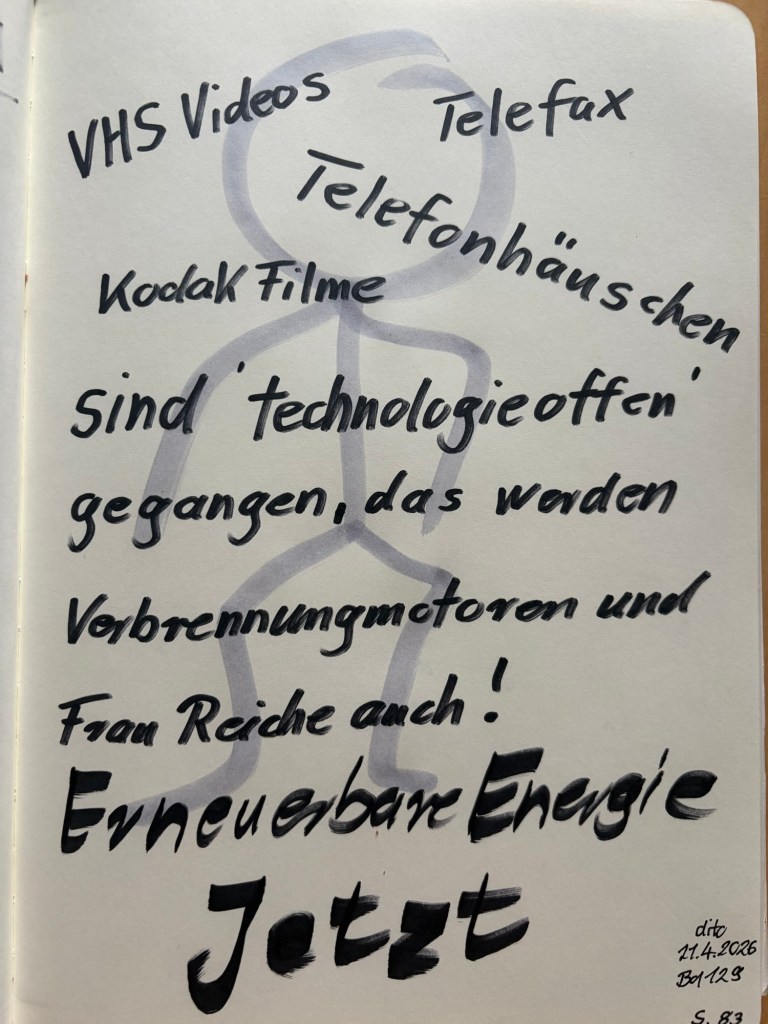 VHS Videos
Telefax
Telefonhäuschen
Kodak Filme
sind 'technologieoffen'
gegangen, das werden
Verbrennungmotoren und
Frau Reiche auch!
Erneuerbare Energie
Jetzt
dito
11.4.2026
Bd 129
S. 83